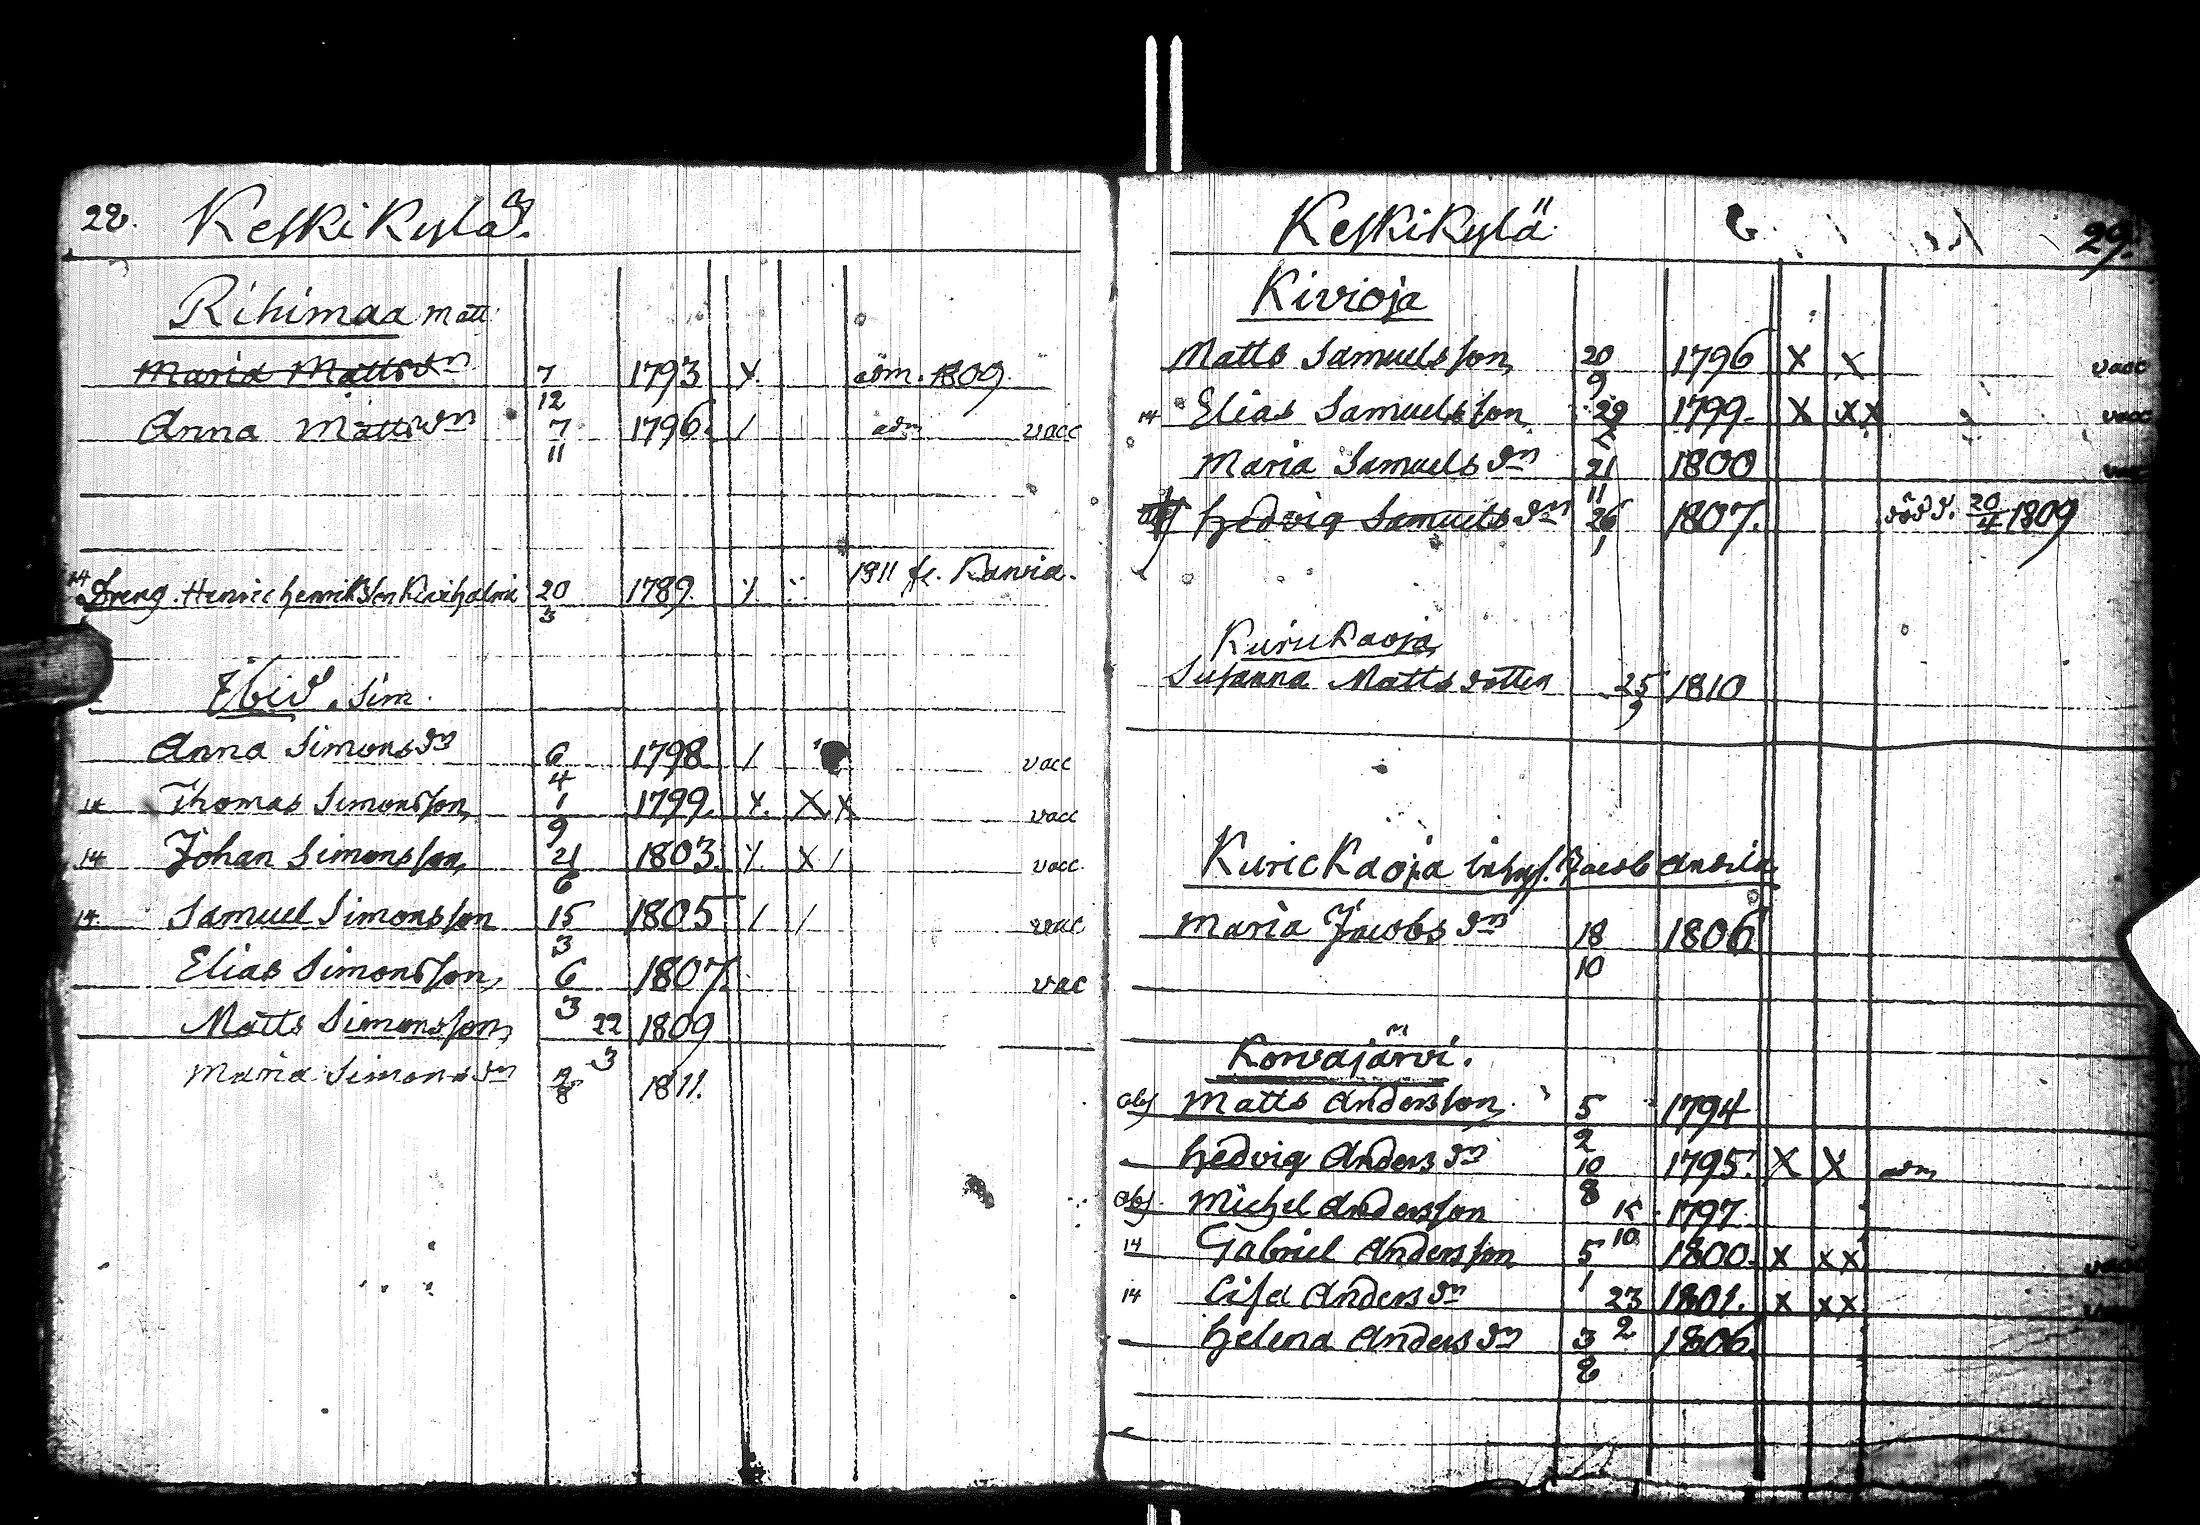 28. Keskikylä.
Rihimaa Matt:
Maria Mattsdn 7/12 1793 x. adm. 1809.
Anna Mattsdn 7/11 1796. / adm vacc
14 Dreng. Henric Henriksson 20/3 1789. 1811 fr.
Ibid. Sim.
Anna Simonsdn 6/4 1798 / vacc
14 Thomas Simonsson 1/9 1799. x. x x vacc
14 Johan Simonsson 21/6 1803. x. x / vacc
14. Samuel Simonsson 15/3 1805 / / vac
Elias Simonsson 6/3 1807. vac
Matts Simonsson 22/3 1809
Maria Simonsdn 1811.
Keskikylä 29.
Kivioja
Matts Samuelsson 20/9 1796 x x vacc
14 Elias Samuelsson 29 1799. x x x vacc
Maria Samuelsdn 21/11 1800 vac
Hedvig Samuelsdn 26/1 1807. död d. 20/4 1809
Kurickaoja
Susanna Mattsdotter 25/9 1810
Kurickaoja inhys. Jacob
Maria Jacobsdn 18/10 1806
Korvajärvi.
obs Matts Andersson 5/2 1794
Hedvig Andersdn 10/8 1795. x x adm
obs. Michel Andersson 15/10 1797.
14 Gabriel Andersson 5/1 1800. x x x vacc
14 Lisa Andersdn 23/2 1801. x x x
Helena Andersdn 3/8 1806.